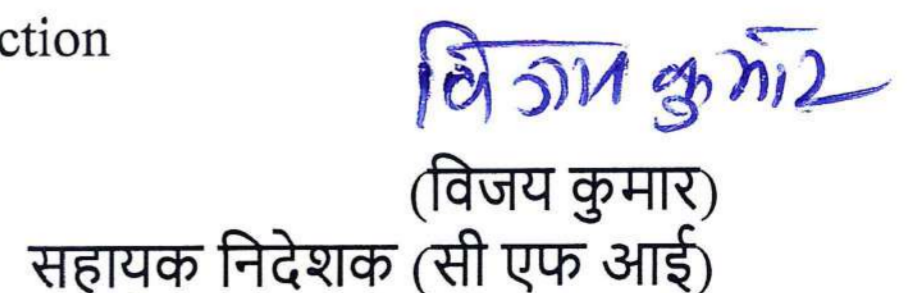 ction
विजय कुमार
(विजय कुमार)
सहायक निदेशक (सी एफ आई)